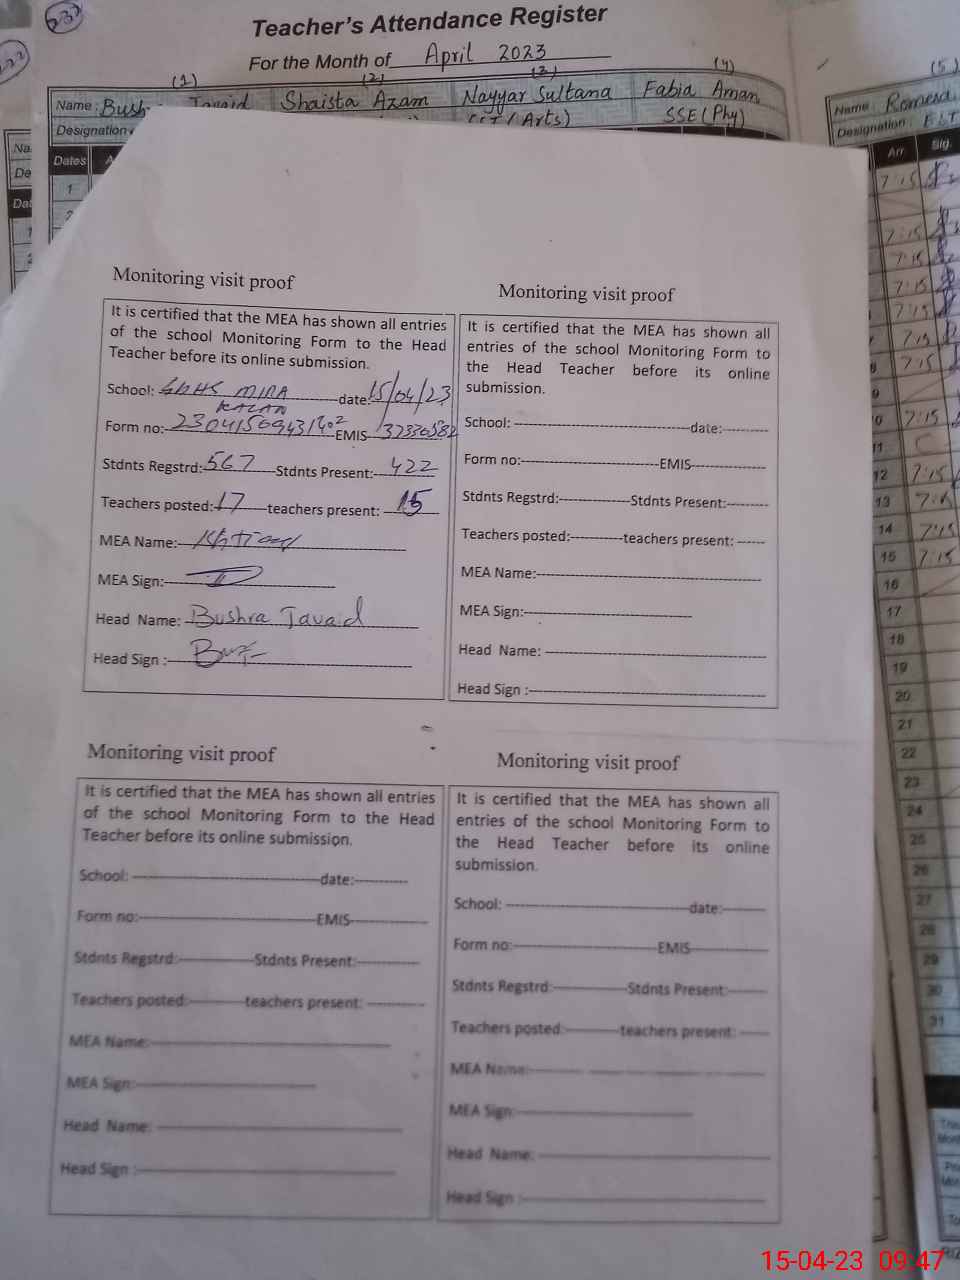 232
Teacher's Attendance Register
For the Month of April 2023
(1) (2) (3) (4) (5)
Name: Bush Javaid Shaista Azam Nayyar Sultana Fabia Aman
Designation SSE (Phy)
Dates
1
2
Name: Romesa
Designation: EST
Arr. Sig.
7:15
7:15
7:15
7:15
7:15
7:15
8 7:15
9
0 7:15
11
12 7:15
13
14 7:15
15 7:15
16
17
18
19
20
21
22
23
24
25
26
27
28
29
30
31
Monitoring visit proof
It is certified that the MEA has shown all entries
of the school Monitoring Form to the Head
Teacher before its online submission.
School: date: 15/04/23
Form no: EMIS
Stdnts Regstrd: 567 Stdnts Present: 422
Teachers posted: 17 teachers present: 15
MEA Name:
MEA Sign:
Head Name: Bushra Javaid
Head Sign :
Monitoring visit proof
It is certified that the MEA has shown all
entries of the school Monitoring Form to
the Head Teacher before its online
submission.
School: date:
Form no: EMIS
Stdnts Regstrd: Stdnts Present:
Teachers posted: teachers present:
MEA Name:
MEA Sign:
Head Name:
Head Sign :
Monitoring visit proof
It is certified that the MEA has shown all entries
of the school Monitoring Form to the Head
Teacher before its online submission.
School: date:
Form no: EMIS
Stdnts Regstrd: Stdnts Present:
Teachers posted: teachers present:
MEA Name:
MEA Sign:
Head Name:
Head Sign :
Monitoring visit proof
It is certified that the MEA has shown all
entries of the school Monitoring Form to
the Head Teacher before its online
submission.
School: date:
Form no: EMIS
Stdnts Regstrd: Stdnts Present:
Teachers posted: teachers present:
MEA Name:
MEA Sign:
Head Name:
Head Sign :
15-04-23 09:47